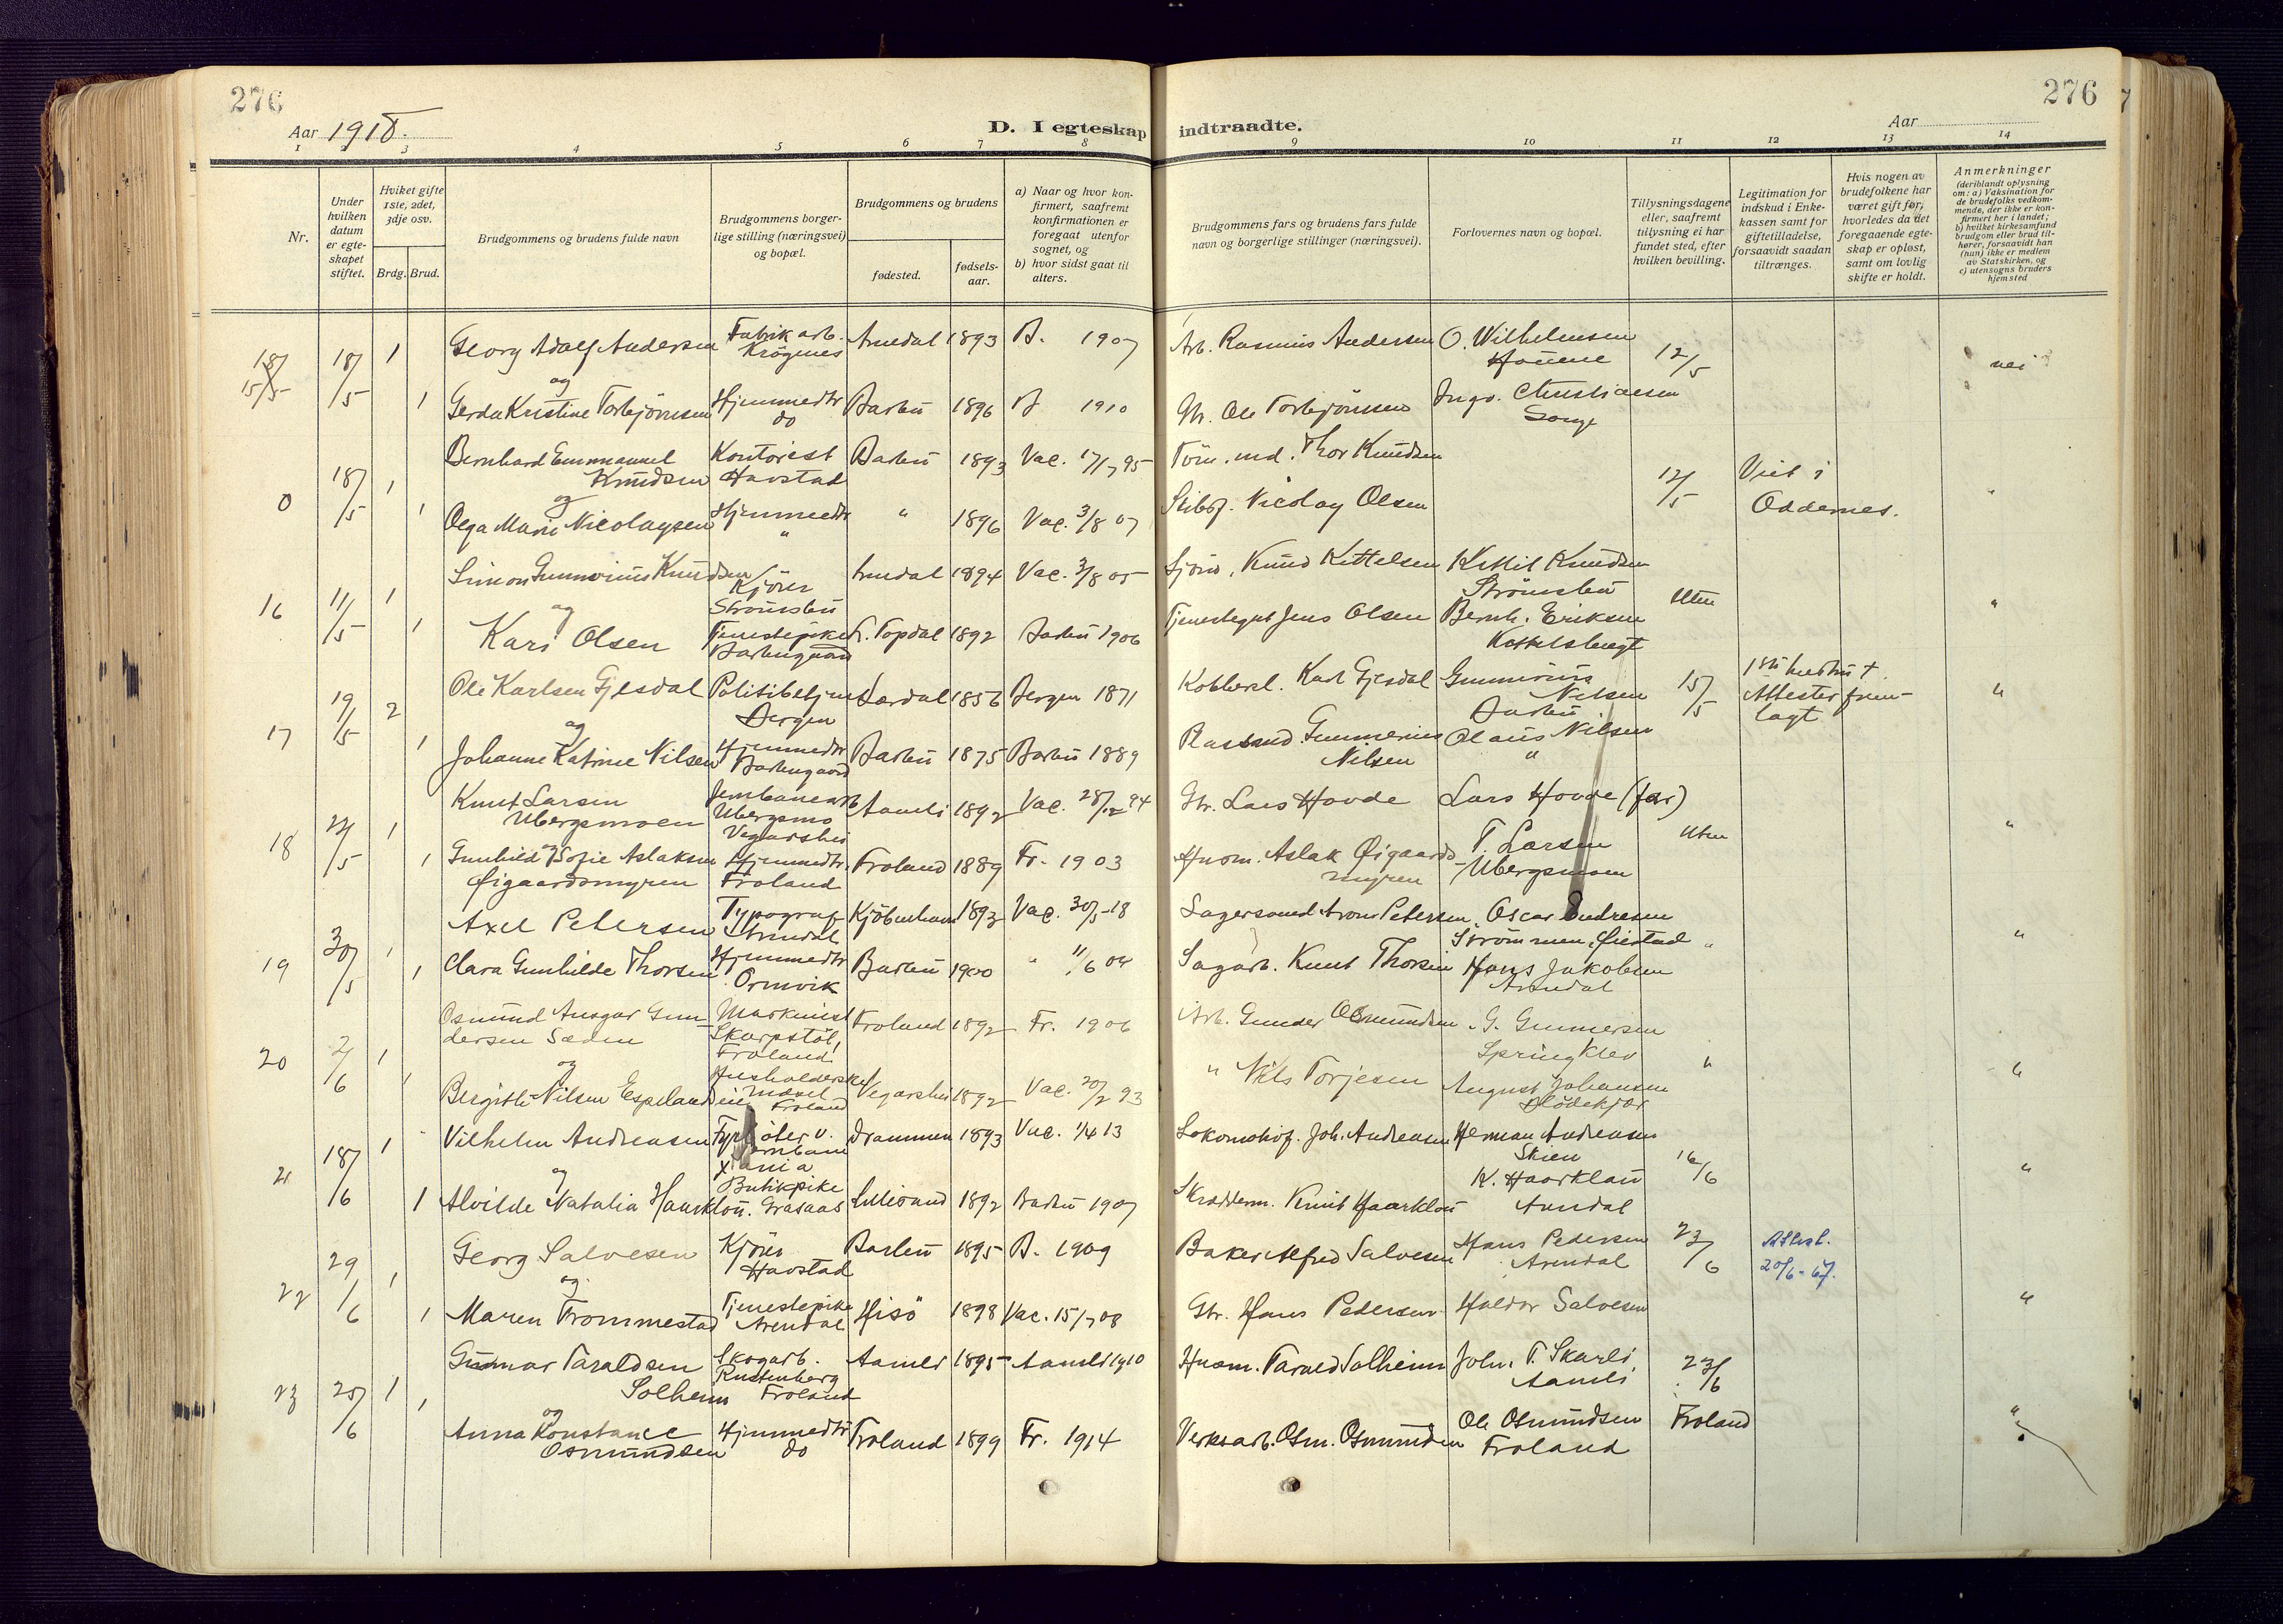 276
276
Aar 1918.
D. I egteskap indtraadte.
Aar
1 2 3 4 5 6 7 8 9 10 11 12 13 14
Nr.
Under hvilken datum er egteskapet stiftet.
Hvilket gifte 1ste, 2det, 3dje osv.
Brdg. Brud.
Brudgommens og brudens fulde navn
Brudgommens borgerlige stilling (næringsvei) og bopæl.
Brudgommens og brudens
fødested.
fødselsaar.
a) Naar og hvor konfirmert, saafremt konfirmationen er foregaat utenfor sognet, og
b) hvor sidst gaat til alters.
Brudgommens fars og brudens fars fulde navn og borgerlige stillinger (næringsvei).
Forlovernes navn og bopæl.
Tillysningsdagene eller, saafremt tillysning ei har fundet sted, efter hvilken bevilling.
Legitimation for indskud i Enkekassen samt for giftetilladelse, forsaavidt saadan tiltrænges.
Hvis nogen av brudefolkene har været gift før, hvorledes da det foregaaende egteskap er opløst, samt om lovlig skifte er holdt.
Anmerkninger
(deriblandt oplysning om: a) Vaksination for de brudefolks vedkommende, der ikke er konfirmert her i landet; b) hvilket kirkesamfund brudgom eller brud tilhører, forsaavidt han (hun) ikke er medlem av Statskirken, og c) utensogns bruders hjemsted
18/5 1 Georg Adolf Andersen Fabrikarb. Krögenes Arnedal 1893 B. 1907 Arb. Rasmus Andersen O. Wilhelmsen 12/5 nei
og
1 Gerda Kristine Torbjörnsen Hjemmedtr do Barbu 1896 B 1910 Gb. Ole Torbjörnsen Ingv. Christiansen Songe
0 18/5 1 Bernhard Emmanuel Knudsen Kontorist Havstad Barbu 1893 Vac. 17/7 95 Töm.md. Thor Knudsen 12/5 Viet i Oddernes. "
og
1 Olga Marie Nicolaysen Hjemmedtr " " 1896 Vac. 3/8 07 Skibsf. Nicolay Olsen
16 11/5 1 Simon Gunnerius Knudsen Kjörer Strömsbu Arnedal 1894 Vac. 3/8 05 Sjörm. Knud Kittelsen Kittil Knudsen Strömsbu Uten "
og
1 Kari Olsen Tjenestepike Barbugaard Ö. Topdal 1892 Barbu 1906 Tjenestegut Jens Olsen Bernh. Eriksen Kittelsbugt
17 19/5 2 Ole Karlsen Gjesdal Politibetjent Bergen Lærdal 1856 Bergen 1871 Kobbersl. Karl Gjesdal Gunnerius Nilsen Barbu 15/5 1ste hustru † Attester fremlagt "
og
1 Johanne Katrine Nilsen Hjemmedtr Barbugaard Barbu 1875 Barbu 1889 Gunnerius Nilsen Olaus Nilsen "
18 22/5 1 Knut Larsen Ubergsmoen Jernbanearb Ubergsmo Vegarshei Aamli 1892 Vac. 28/12 94 Gbr. Lars Hovde Lars Hovde (far) Uten "
og
1 Gunhild Sofie Aslaksen Øigaardsmyren Hjemmedtr. Froland Froland 1889 Fr. 1903 Husm. Aslak Øigaardsmyren T. Larsen Ubergsmoen
19 30/5 1 Axel Petersen Typograf Arendal Kjöbenhavn 1893 Vac. 30/5-18 Lagersmed Arons Petersen Oscar Endresen Strömmen, Øiestad " "
1 Clara Gunhilde Thorsen Hjemmedtr Ormvik Barbu 1900 " 11/6 04 Sagarb. Knut Thorsen Hans Jakobsen Arendal
20 2/6 1 Osmund Ansgar Gundersen Sæden Maskinist Skarpstöl, Froland Froland 1892 Fr. 1906 Arb. Gunder Osmundsen G. Gunnersen Springklev " "
og
1 Bergithe Nilsen Espeland Husholderske Froland Vegarshei 1892 Vac. 20/2 93 " Nils Torjesen August Johansen Blödekjær
21 18/6 1 Vilhelm Andreasen Fyrböter v. Jernban Xania Drammen 1893 Vac. 1/4 13 Lokomotivf. Joh. Andreasen Herman Andreasen Skien 16/6 "
og
1 Alvilde Natalia Haarklou. Butikpike Graaaas Lillesand 1892 Barbu 1907 Skræderm. Knut Haarklou K. Haarklau Arendal
22 29/6 1 Georg Salvesen Kjörer Havstad Barbu 1895 B. 1909 Baker Alfred Salvesen Hans Pedersen Arendal 23/6 Attest. 20/6-67. "
og
1 Maren Trommestad Tjenestepike Arendal Hisö 1898 Vac. 15/7 08 Gbr. Hans Pedersen Haldor Salvesen
23 25/6 1 Gunnar Taraldsen Solheim Skogarb. Rustenberg Froland Aamli 1895 Aamli 1910 Husm. Tarald Solheim John. T. Skarli, Aamli 23/6 Froland "
og
1 Anna Konstance Osmundsen Hjemmedtr do Froland 1899 Fr. 1914 Verksarb. Osm. Osmundsen Ole Osmundsen Froland